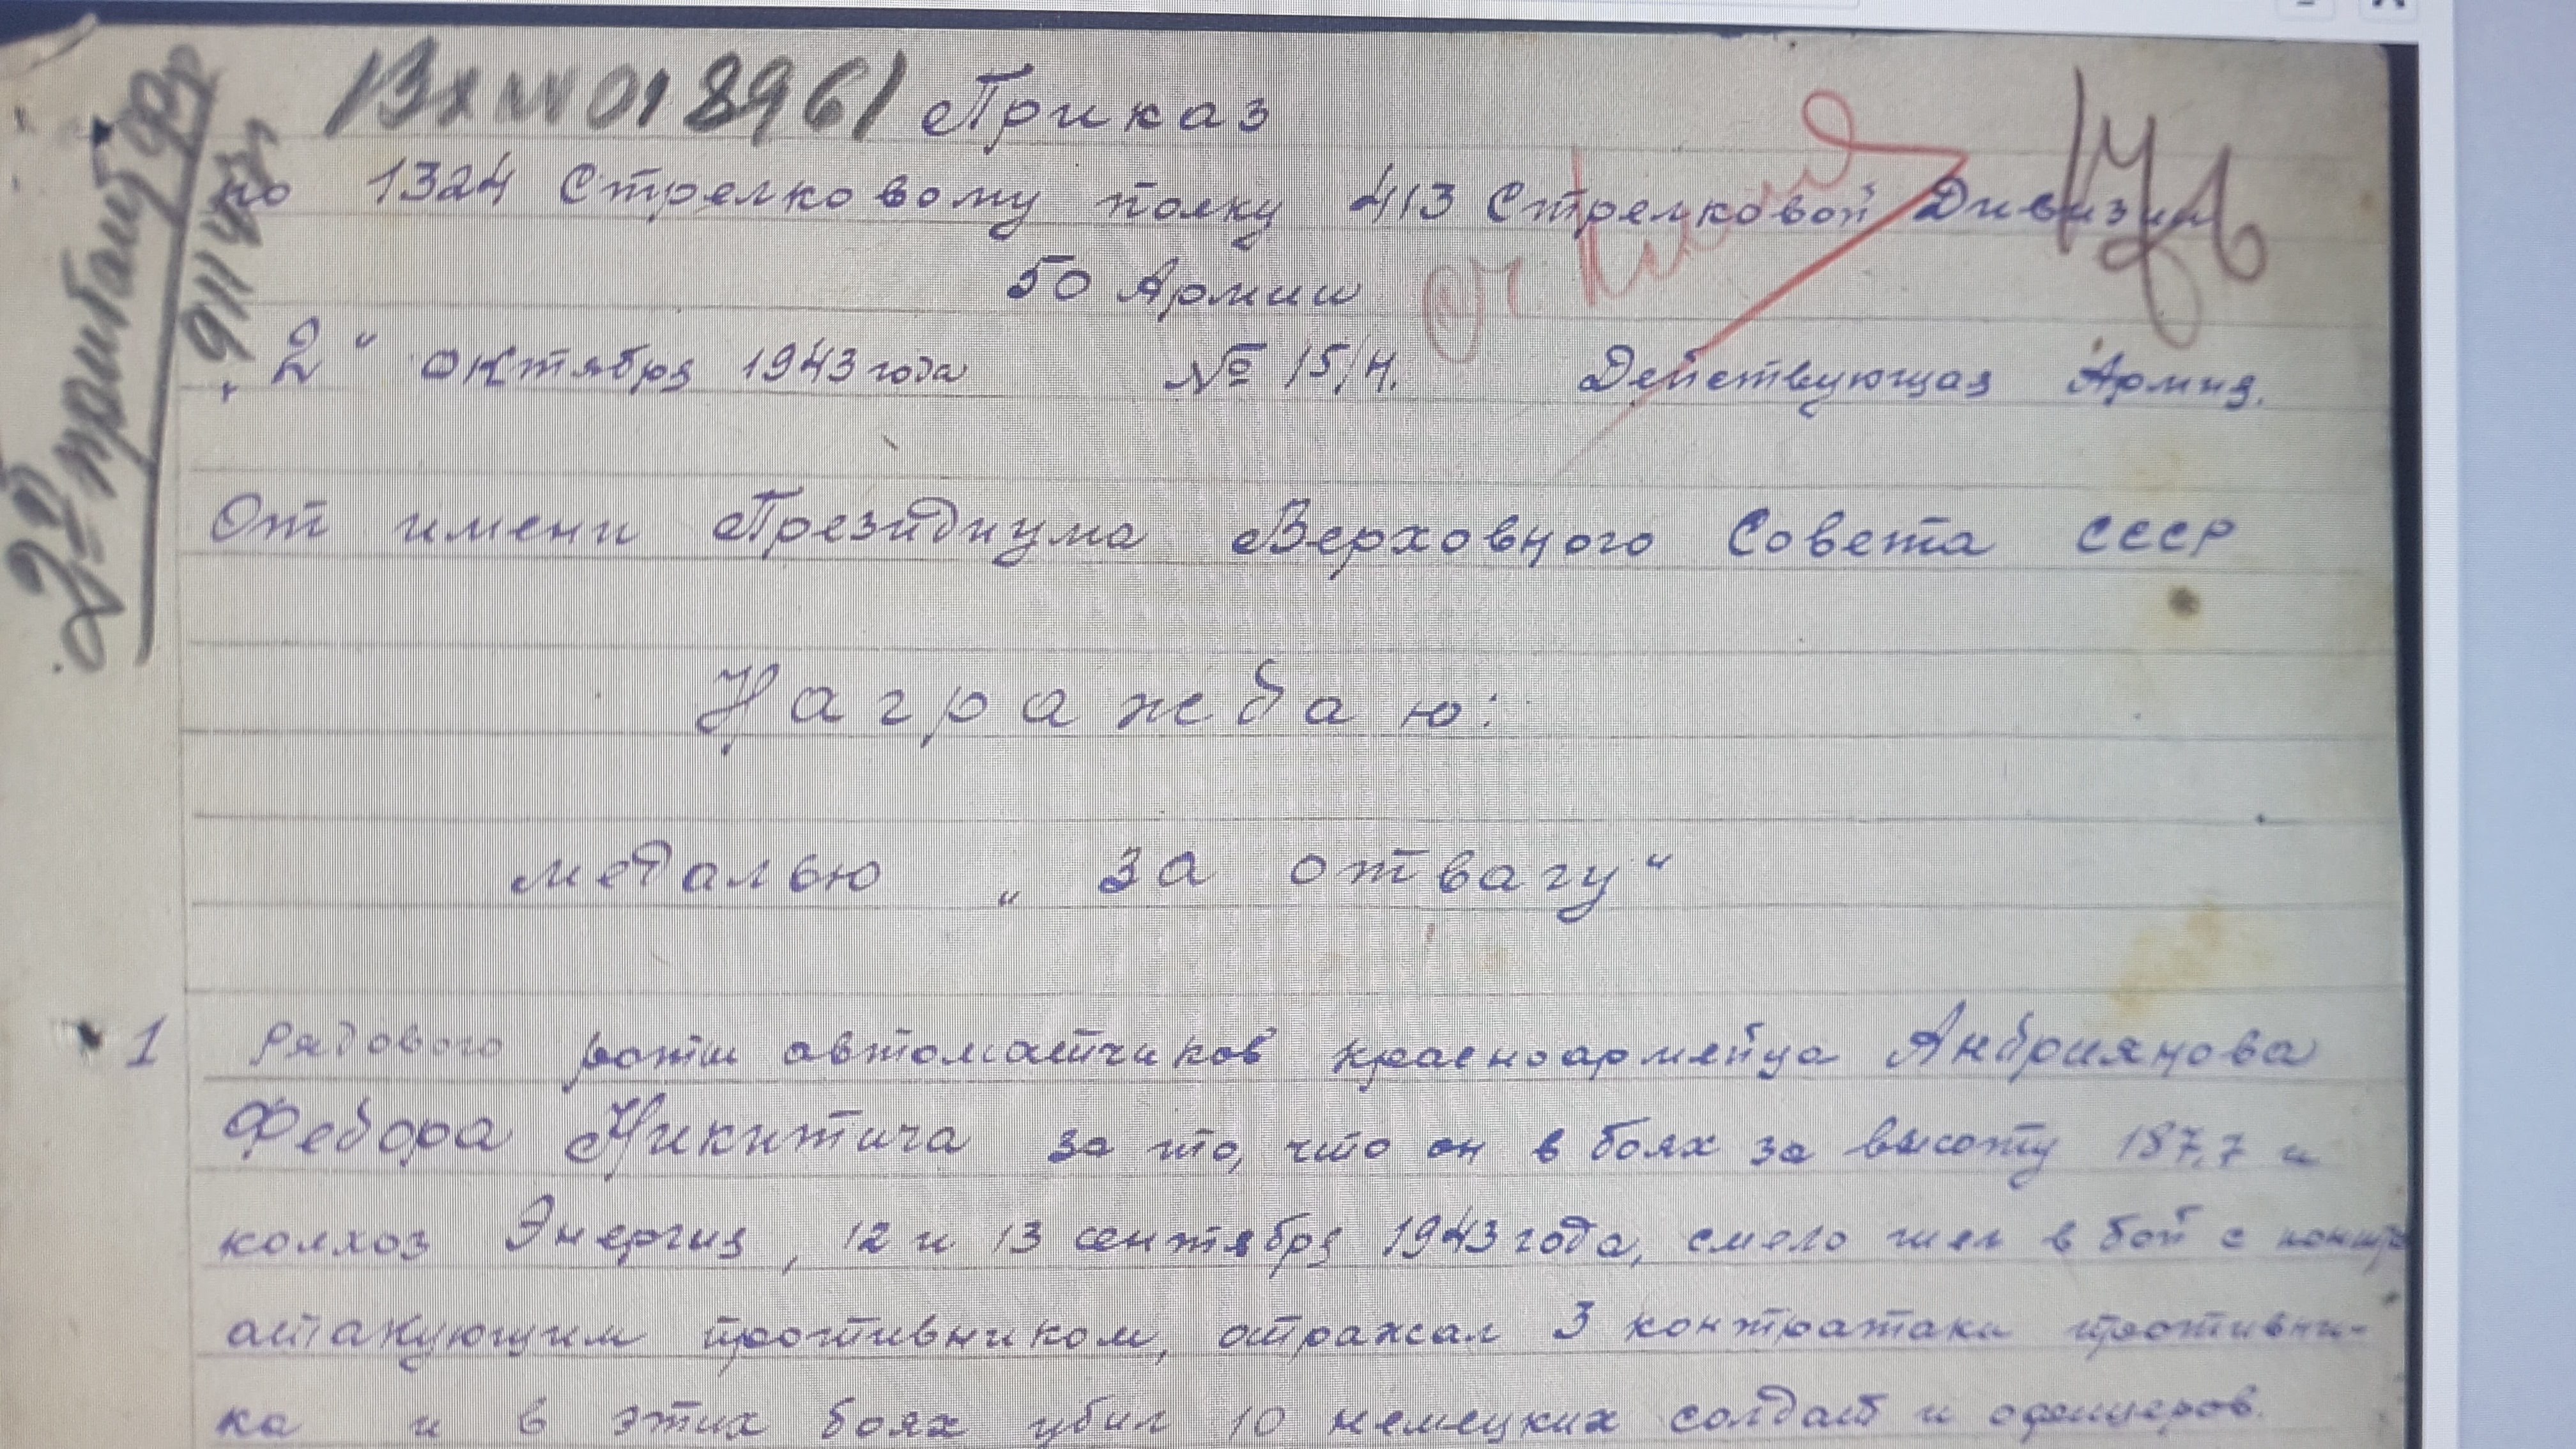 Вх №018961 Приказ
по 1324 Стрелковому полку 413 Стрелковой Дивизии
50 Армии
"2" октября 1943 года № 15/н. Действующая Армия.
От имени Президиума Верховного Совета СССР
Награждаю:
медалью „за отвагу“
1 Рядового роты автоматчиков красноармейца Андриянова
Федора Никитича за то, что он в боях за высоту 187,7 и
колхоз Энергия, 12 и 13 сентября 1943 года, смело шел в бой с контр
атакующим противником, отражал 3 контратаки противни-
ка и в этих боях убил 10 немецких солдат и офицеров.